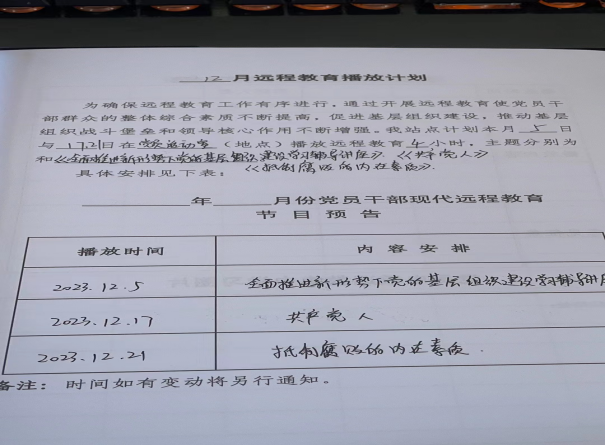 12 月远程教育播放计划
为确保远程教育工作有序进行，通过开展远程教育使党员干
部群众的整体综合素质不断提高，促进基层组织建设，推动基层
组织战斗堡垒和领导核心作用不断增强。我站点计划本月 5 日
与 17.21日在党员活动室（地点）播放远程教育 4 小时，主题分别为
和《全面推进新形势下党的基层组织建设学习辅导讲座》、《共产党人》
《抵制腐败的内在素质》.
具体安排见下表：
年 月份党员干部现代远程教育
节 目 预 告
播放时间 内 容 安 排
2023.12.5 全面推进新形势下党的基层组织建设学习辅导讲座
2023.12.17 共产党人
2023.12.21 抵制腐败的内在素质.
备注： 时间如有变动将另行通知。